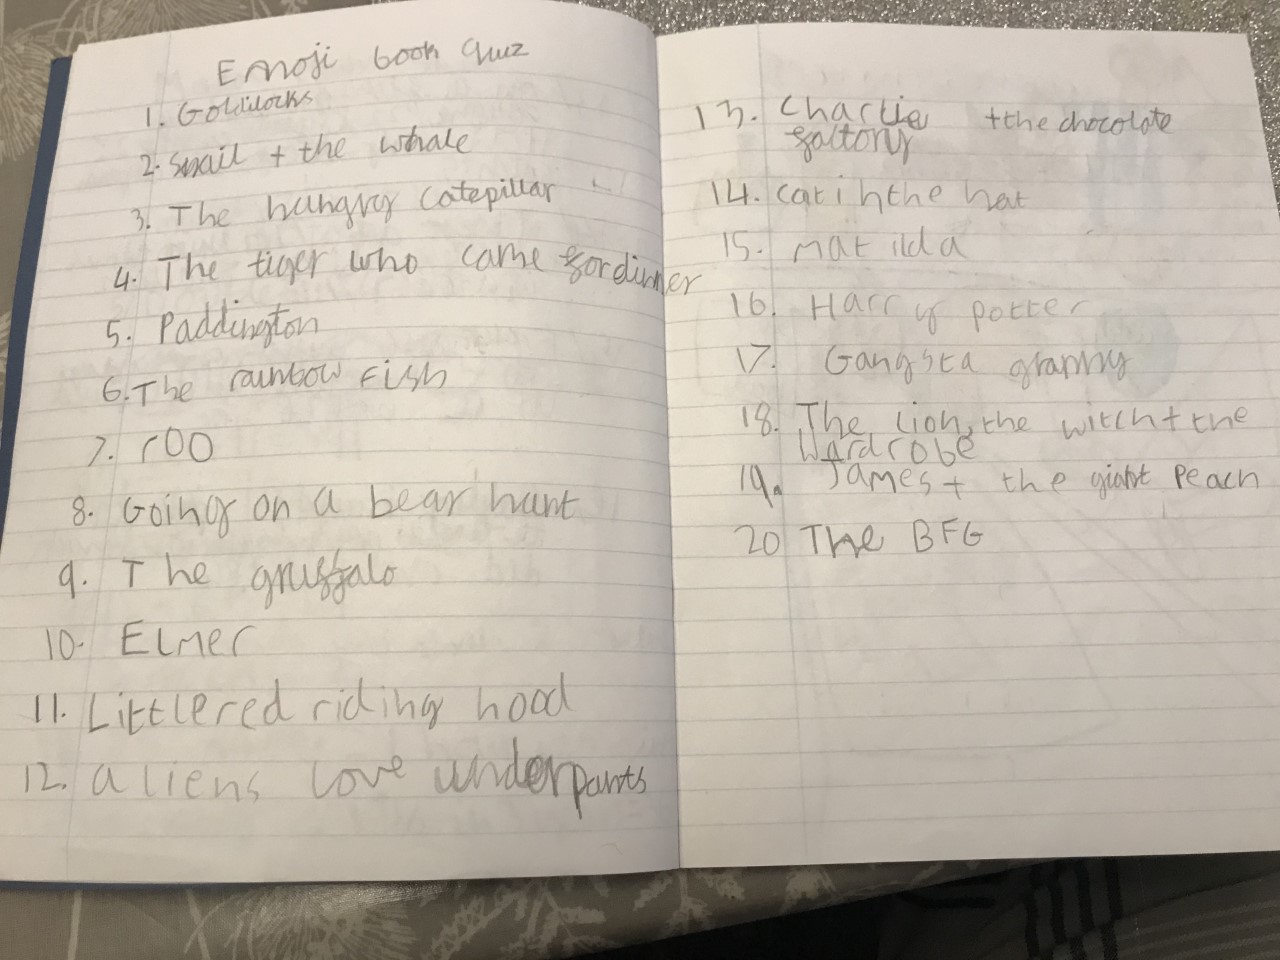 Emoji book quiz
1. Goldilocks
2. Snail + the whale
3. The hungry catepillar
4. The tiger who came for dinner
5. Paddington
6. The rainbow Fish
7. rOO
8. Going on a bear hunt
9. The gruffalo
10. Elmer
11. Little red riding hood
12. aliens love underpants
13. Charlie + the chocolate
fattory
14. cat in the hat
15. matilda
16. Harry potter
17. Gangsta granny
18. The lion, the witch + the
Wardrobe
19. James + the giant Peach
20 The BFG